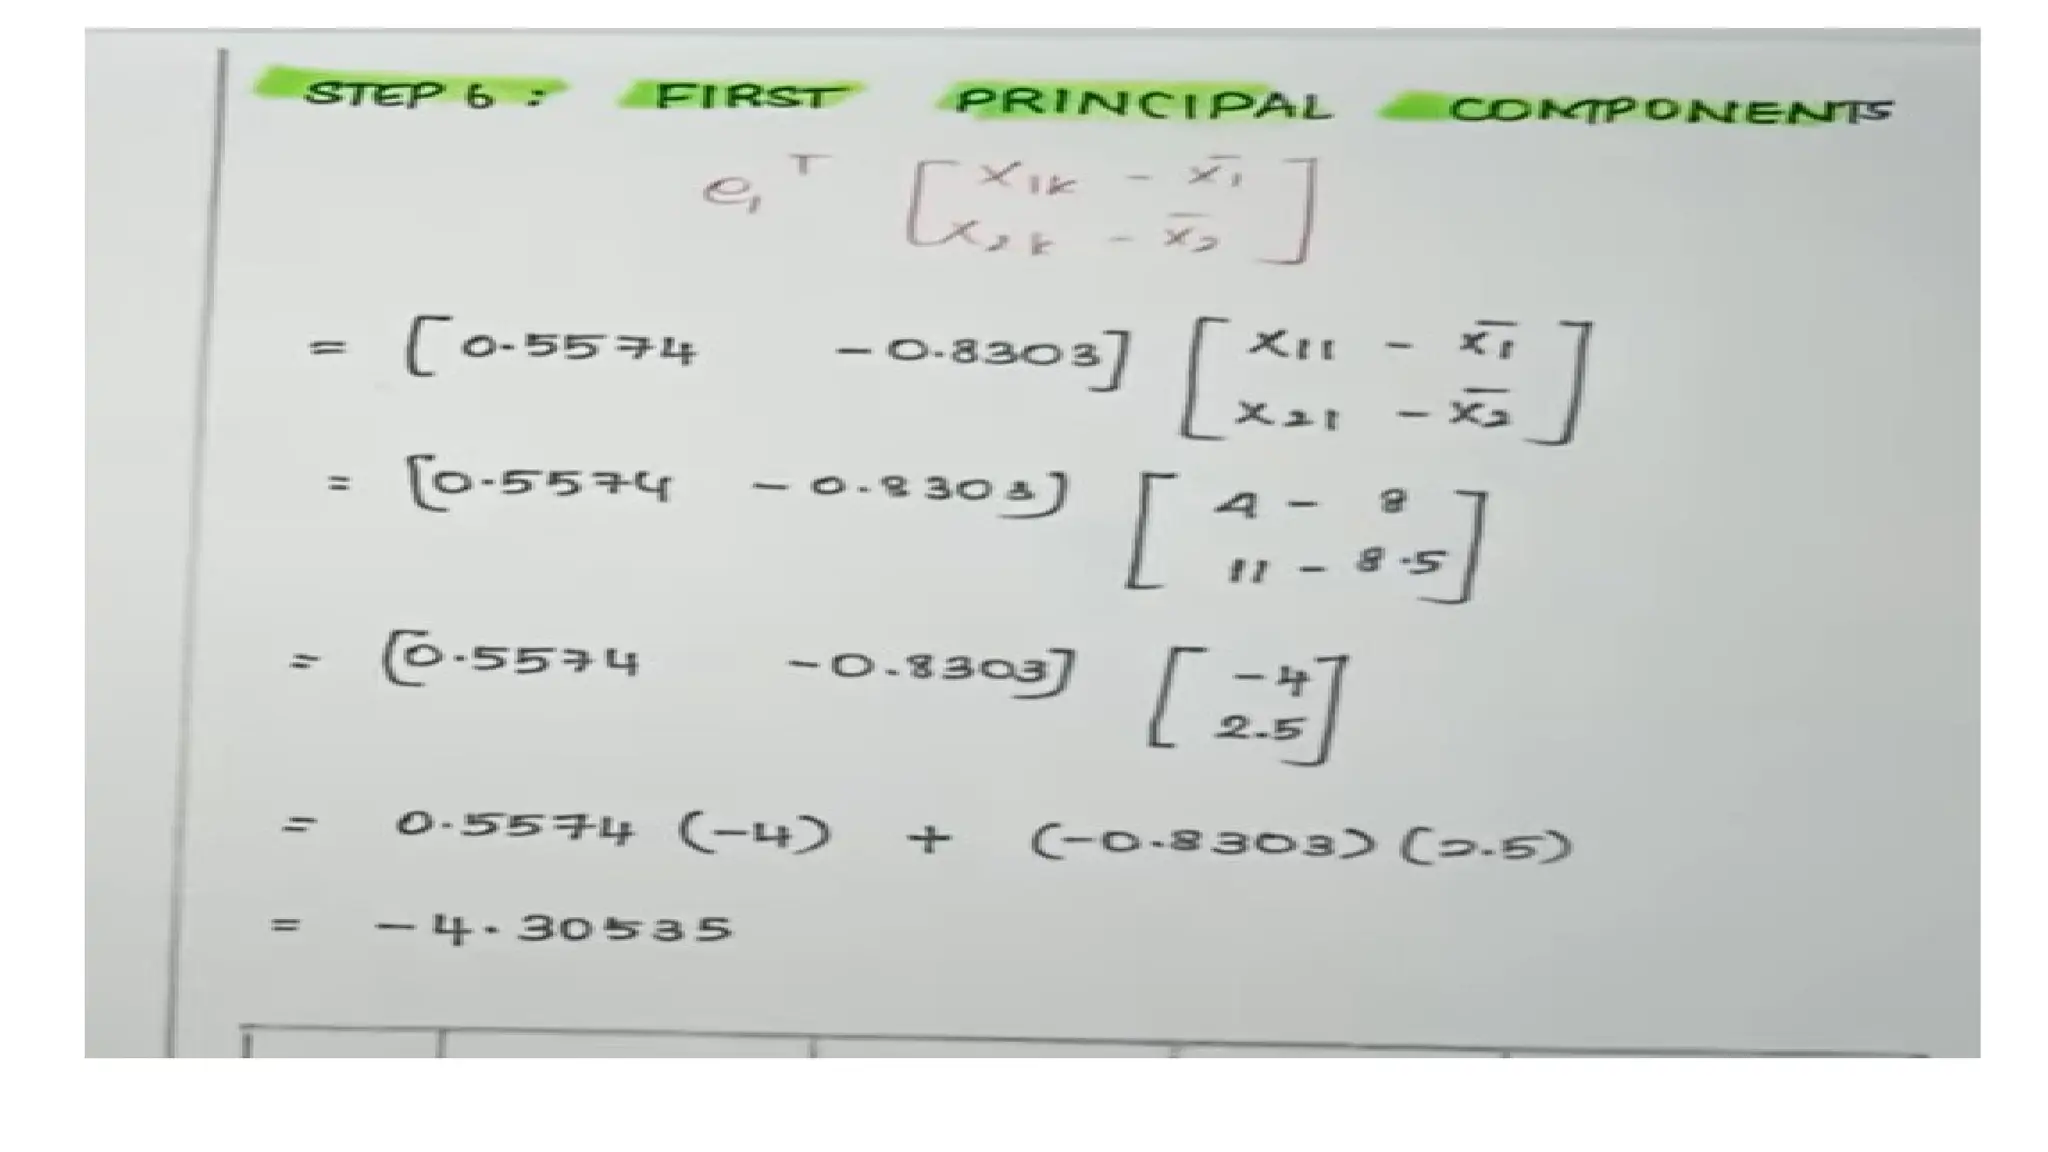 STEP 6 : FIRST PRINCIPAL COMPONENTS
e₁ᵀ [ x₁ₖ - x̄₁
x₂ₖ - x̄₂ ]
= [ 0.5574 -0.8303 ] [ x11 - x̄1
x21 - x̄2 ]
= [ 0.5574 -0.8303 ] [ 4 - 8
11 - 8.5 ]
= [ 0.5574 -0.8303 ] [ -4
2.5 ]
= 0.5574 (-4) + (-0.8303) (2.5)
= -4.30535